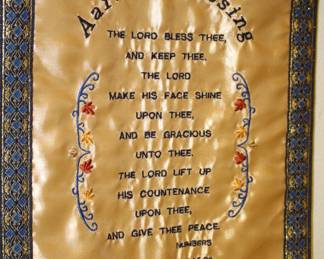 THE LORD BLESS THEE,
AND KEEP THEE.
THE LORD
MAKE HIS FACE SHINE
UPON THEE,
AND BE GRACIOUS
UNTO THEE.
THE LORD LIFT UP
HIS COUNTENANCE
UPON THEE,
AND GIVE THEE PEACE.
NUMBERS